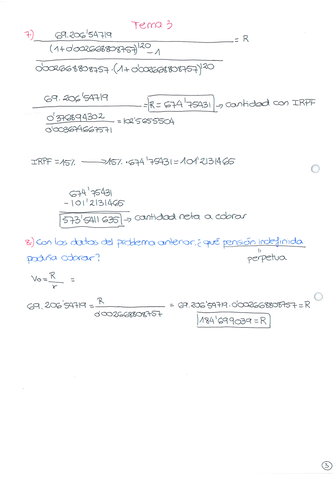 Tema 3
7) 69.206'54719 = R
(1+0'002668808757)^120 - 1
0'002668808757 · (1+0'002668808757)^120
69.206'54719 = R = 674'75431 → cantidad con IRPF
0'376894302 = 102'5655504
0'003674667571
IRPF = 15% → 15% · 674'75431 = 101'2131465
674'75431
- 101'2131465
573'5411635 → cantidad neta a cobrar
8) Con los datos del problema anterior, ¿qué pensión indefinida
podría cobrar? perpetua
V₀ = R/r =
69.206'54719 = R/0'002668808757 = 69.206'54719 · 0'002668808757 = R
184'699039 = R
3